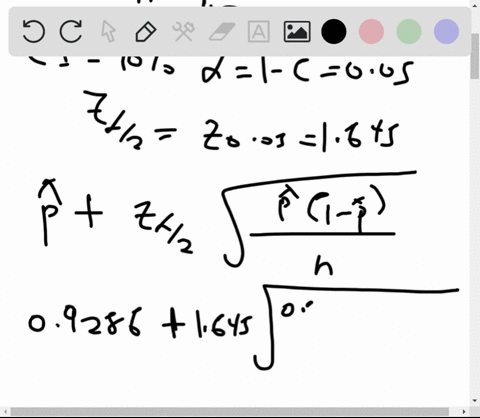 α = 1 - C = 0.05
Z α/2 = Z 0.05 = 1.645
p̂ + Z α/2 √ p̂ (1 - p̂) / n
0.9286 + 1.645 √ 0.